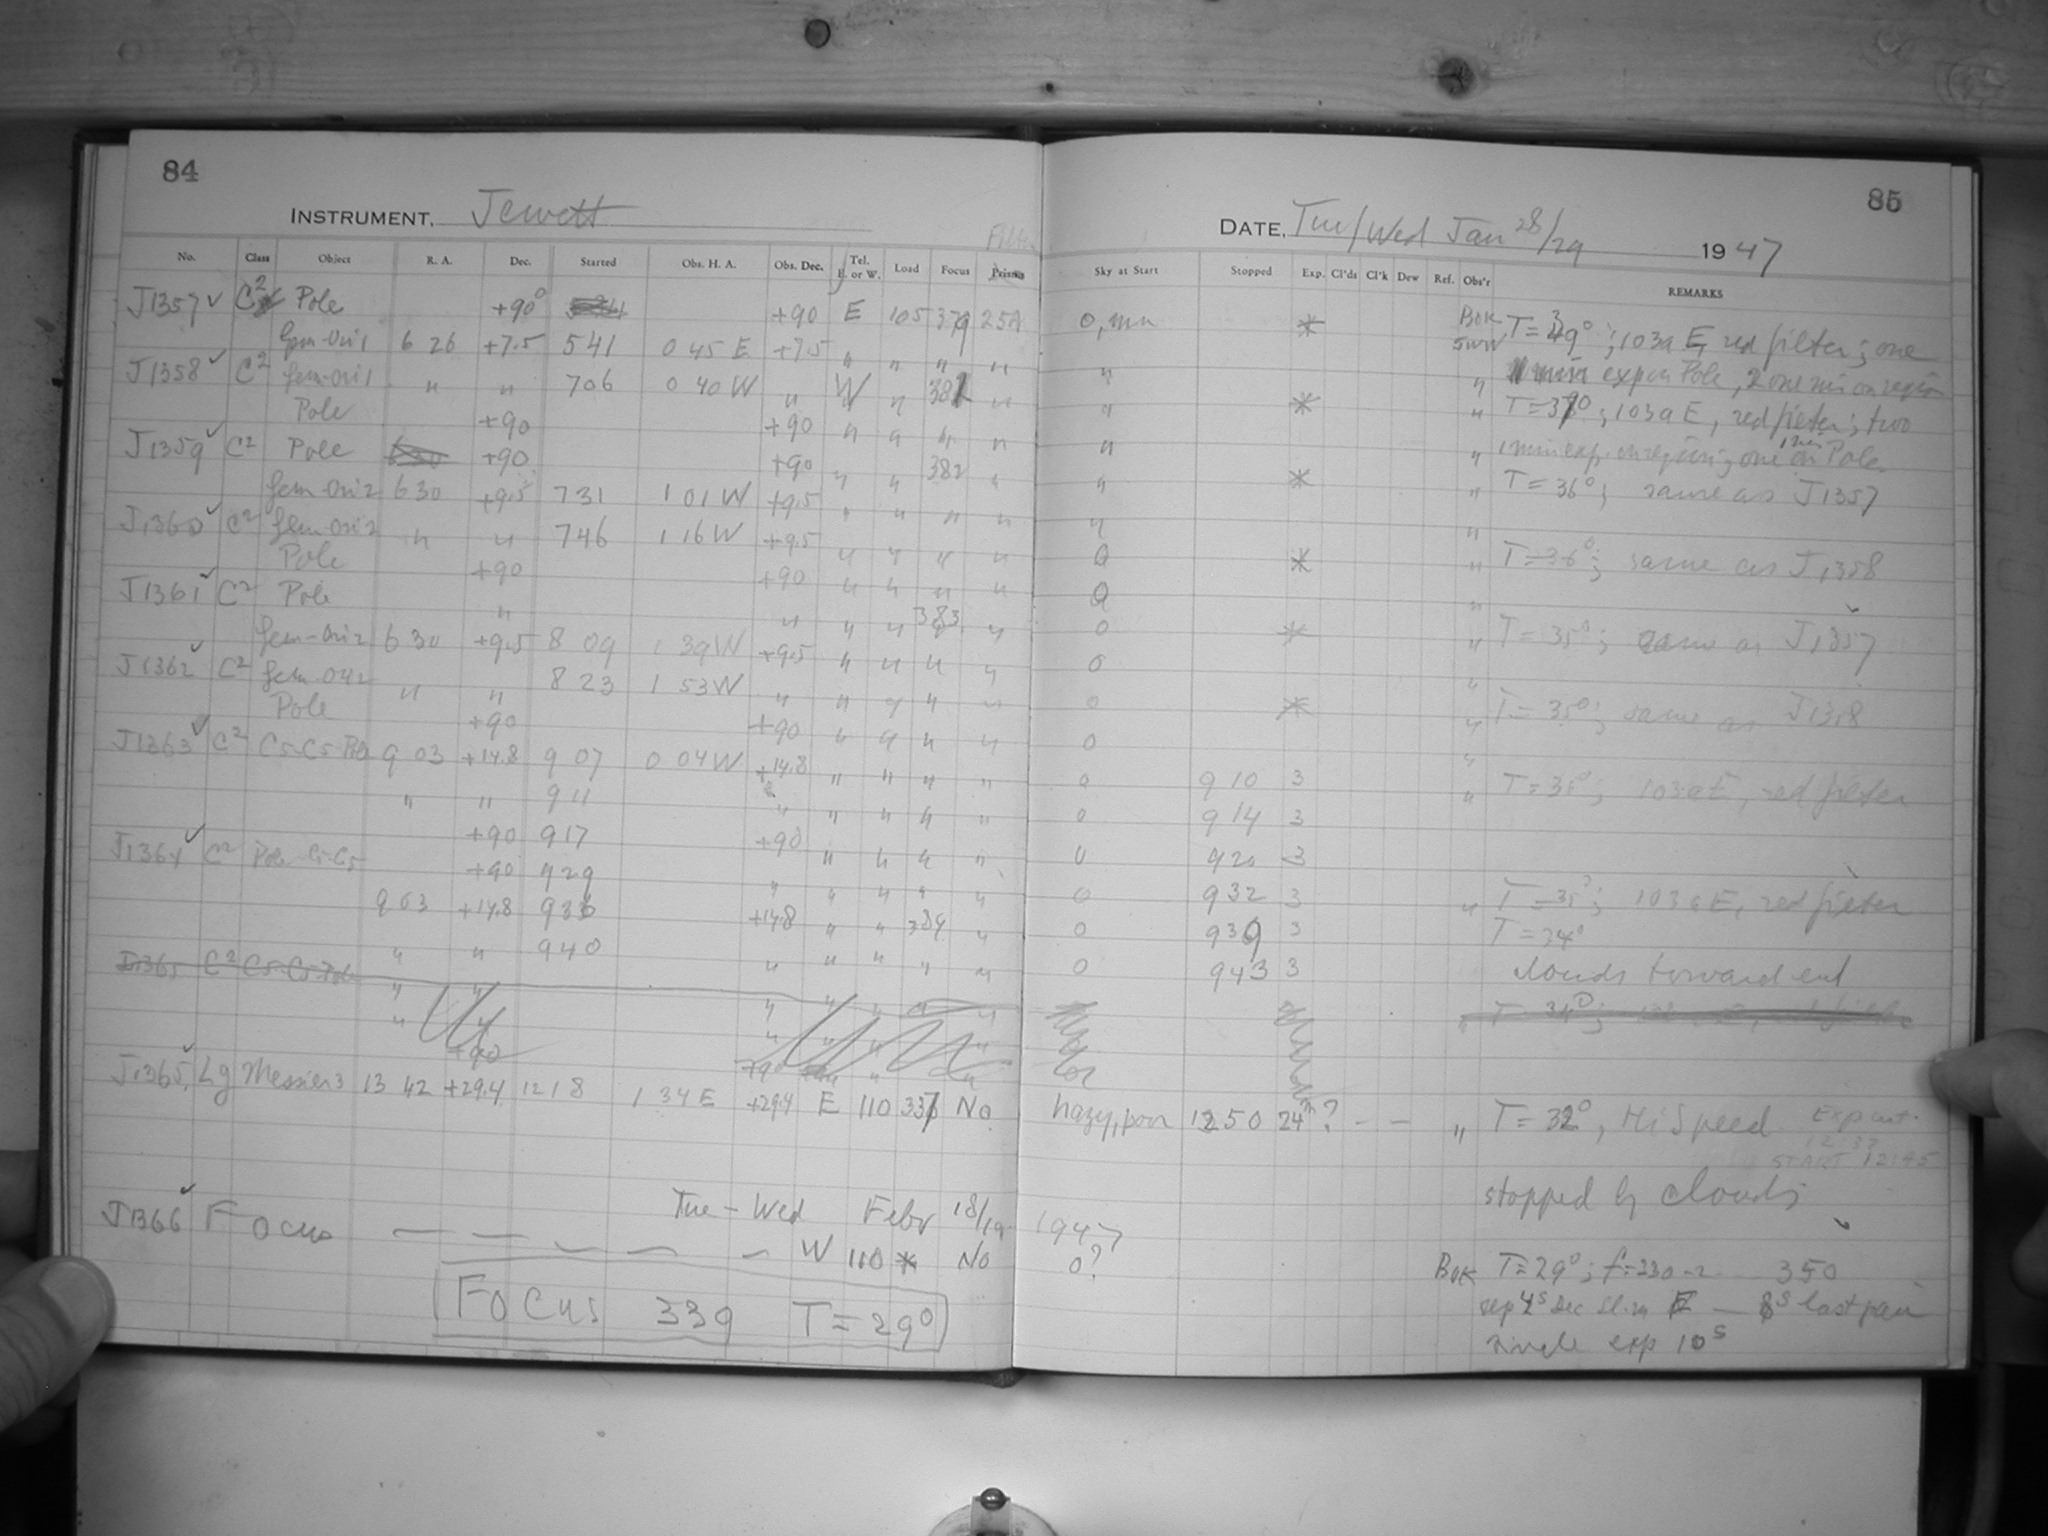 84
INSTRUMENT, Jewett
No. Class Object R. A. Dec. Started Obs. H. A. Obs. Dec. Tel. E. or W. Load Focus Prisms
J1357 ✓ C2 Pole +90° +90 E 105 379 25A
Gem-Ori 1 6 26 +7.5 5 41 0 45 E +7.5 " " " "
J1358 ✓ C2 Gem-Ori 1 " " 7 06 0 40 W " W " 381 "
Pole +90 +90 " " " "
J1359 ✓ C2 Pole +90 +90 " " 382 "
Gem-Ori 2 6 30 +9.5 7 31 1 01 W +9.5 " " " "
J1360 ✓ C2 Gem-Ori 2 " " 7 46 1 16 W +9.5 " " " "
Pole +90 +90 " " " "
J1361 ✓ C2 Pole " " " " 383 "
Gem-Ori 2 6 30 +9.5 8 09 1 39 W +9.5 " " " "
J1362 ✓ C2 Gem-Ori 2 " " 8 23 1 53 W " " " " "
Pole +90 +90 " " " "
J1363 ✓ C2 C5-C5-Pole 9 03 +14.8 9 07 0 04 W +14.8 " " " "
" " 9 11 " " " " "
+90 9 17 +90 " " " "
J1364 ✓ C2 Pole C5-C5 +90 9 29 " " " " "
9 03 +14.8 9 36 +14.8 " " 384 "
" " 9 40 " " " " "
J1365 C2 C5-C5-Pole " " " " " " "
" " " " " "
+90 +90 " "
J1365 ✓ Lg Messier 3 13 42 +29.4 12 18 1 34 E +29.4 E 110 337 No
Tue - Wed Febr 18/19
J1366 ✓ Focus — — — — — W 110 * No
FOCUS 339 T = 29°
85
DATE, Tue/Wed Jan 28/29 1947
Sky at Start Stopped Exp. Cl'ds Cl'k Dew Ref. Obs'r REMARKS
0, * BOK SWW T = 39°; 103a E, red filter; one
" " min exp on Pole, 2 one min on region
" * " T = 37°; 103a E, red filter; two
" " 1 min exp. on region; one 1 min on Pole
" * " T = 36°; same as J1357
" "
0 * " T = 36°; same as J1358
0 "
0 * " T = 35°; same as J1357
0 "
0 * " T = 35°; same as J1358
0 "
0 9 10 3 " T = 35°; 103aE, red filter
0 9 14 3
0 9 20 3
0 9 32 3 " T = 35°; 103a E, red filter
0 9 39 3 T = 34°
0 9 43 3 clouds toward end
" T = 34°;
hazy, poor 12 50 24m? - - " T = 32°, Hi Speed Exp cut.
12:37
START 12:45
stopped by clouds
1947
0? BOK T = 29°; f = 330 - 2 - 350
sep 4s Dec sl.m E — 8s last pair
single exp 10s